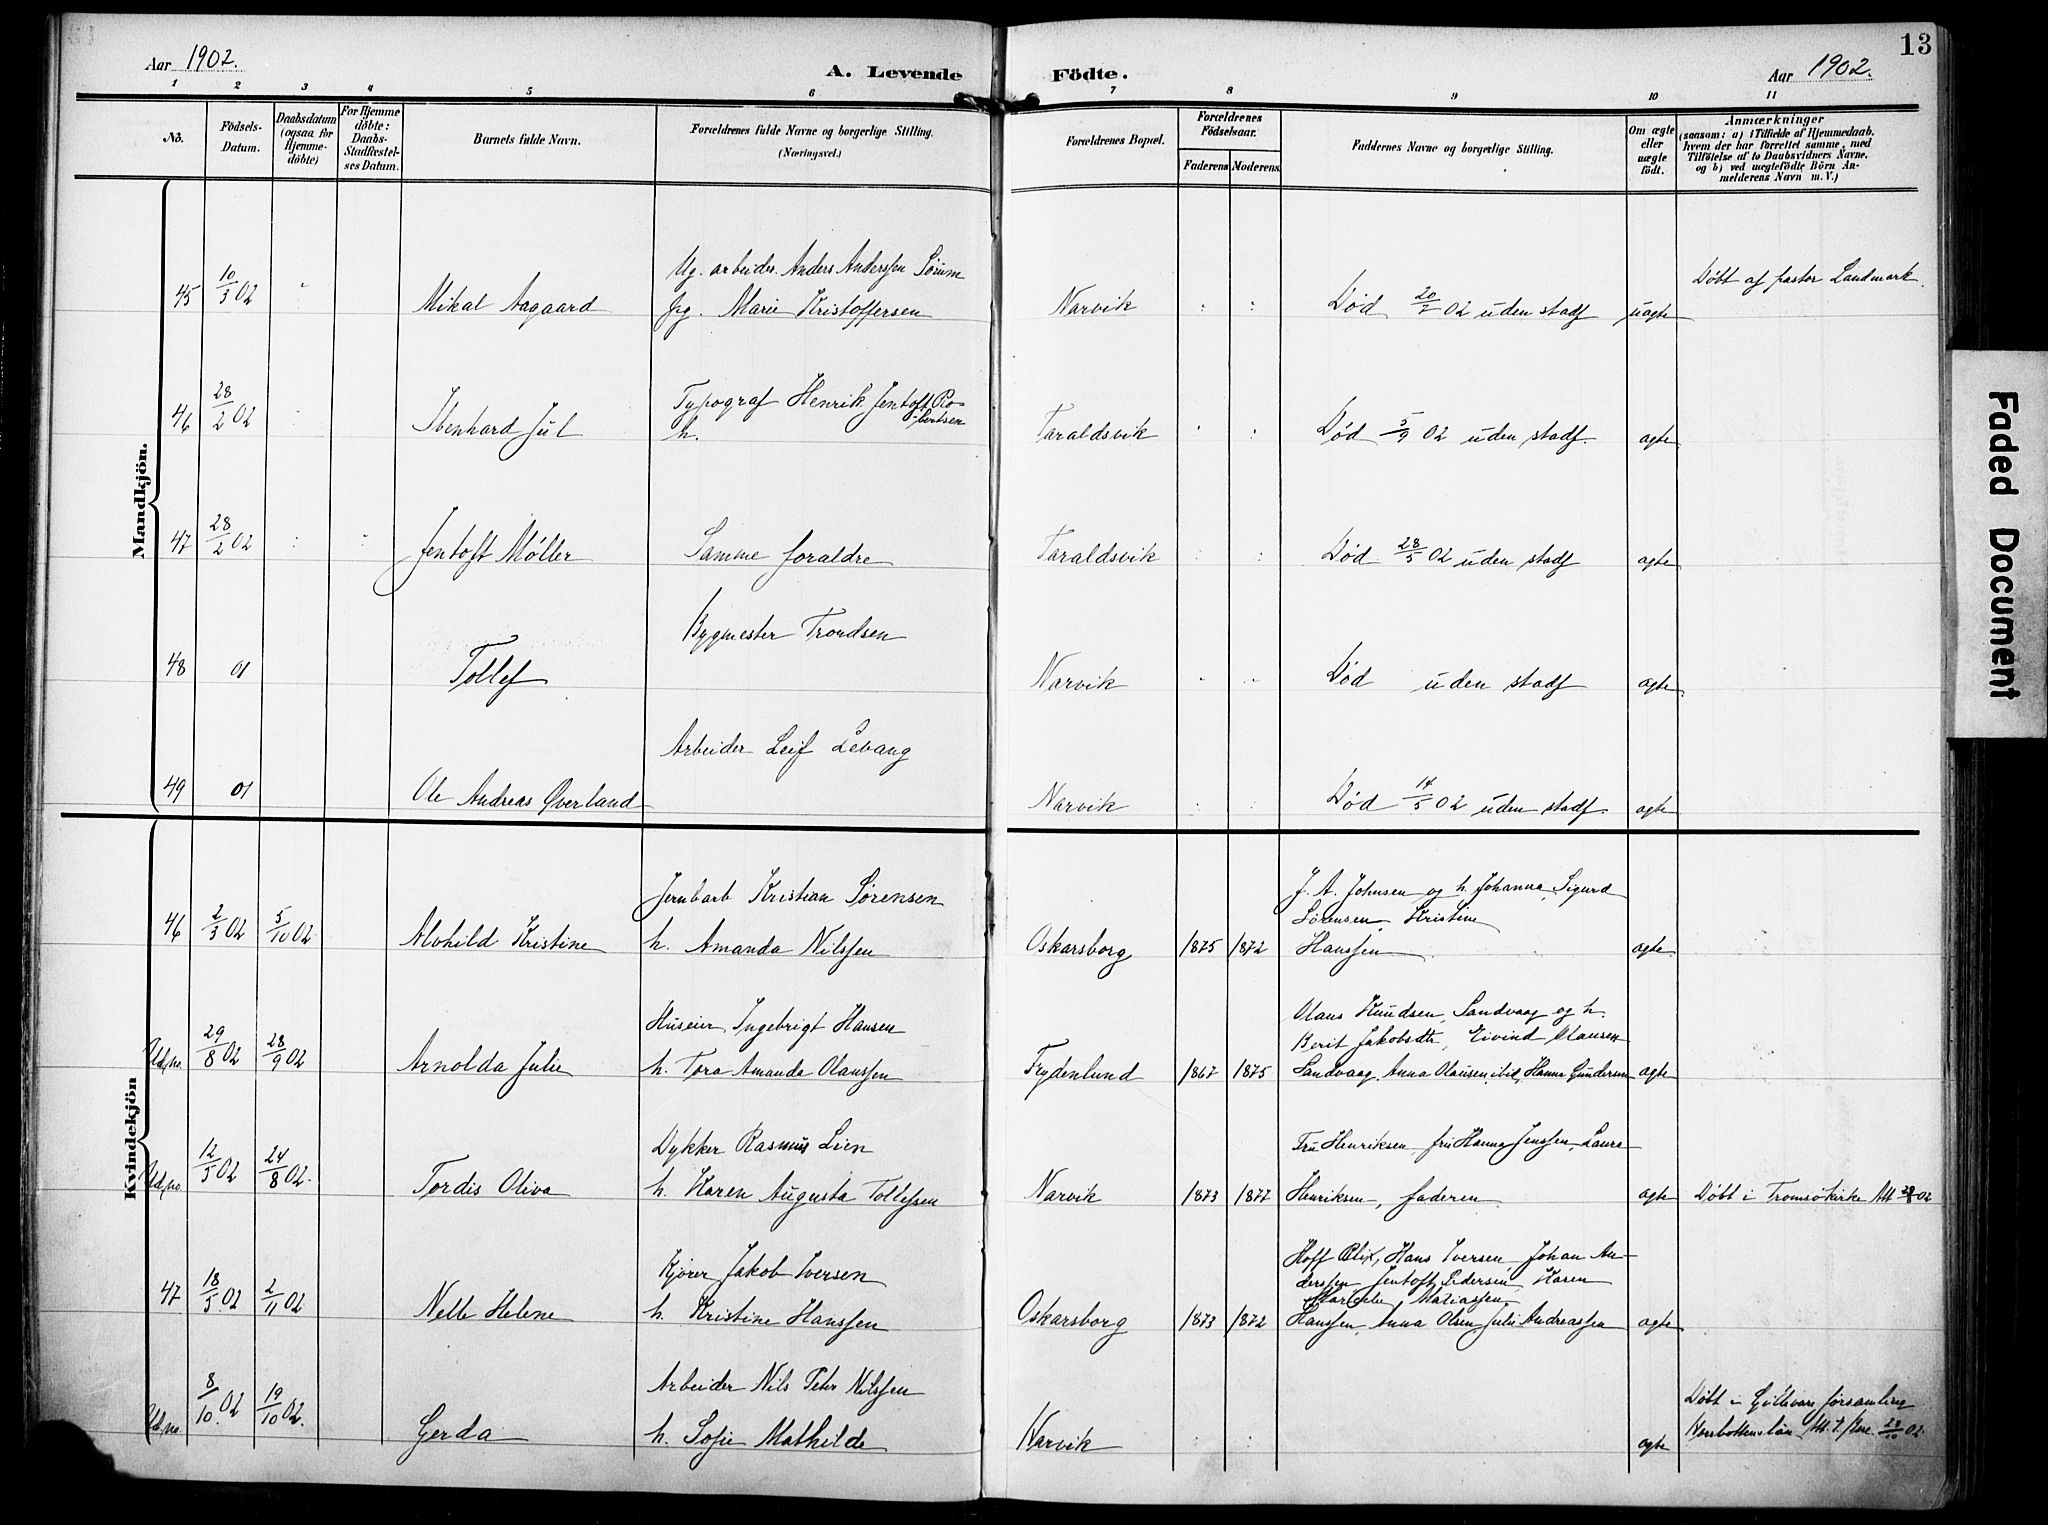 Aar 1902.
A. Levende Födte.
Aar 1902.
13
1 2 3 4 5 6 7 8 9 10 11
No.
Födsels-Datum.
Daabsdatum (ogsaa for Hjemme-döbte)
For Hjemme döbte: Daabs-Stadfæstel-ses Datum.
Barnets fulde Navn.
Forældrenes fulde Navne og borgerlige Stilling.
(Næringsvei.)
Forældrenes Bopæl.
Forældrenes Födselsaar.
Faderens Moderens
Faddernes Navne og borgerlige Stilling.
Om ægte eller uægte födt.
Anmærkninger
(saasom: a) i Tilfælde af Hjemmedaab, hvem der har forrettet samme, med Tilföielse af to Daabsvidners Navne. og b) ved uægtefödte Börn An-melderens Navn m. V.)
Mandkjön.
45 10/3 02 Mikal Aagaard
Ug. arbeider Anders Anderssen Sörum
Pg. Marie Kristoffersen
Narvik
Død 20/7 02 uden stadf
uægte
Døbt af pastor Landmark
46 28/2 02 Ibenhard Jul
Typograf Henrik Jentoft Ro-
bertsen
h.
Taraldsvik
Død 5/9 02 uden stadf.
ægte
47 28/2 02 Jentoft Møller
Samme foraldre
Taraldsvik
Død 28/5 02 uden stadf
ægte
48 01 Tollef
Bygmester Trondsen
Narvik
Død uden stadf
ægte
49 01 Ole Andreas Øverland
Arbeider Leif Levang
Narvik
Død 14/5 02 uden stadf.
ægte
Kvindekjön
46 2/3 02 5/10 02 Alvhild Kristine
Jernbarb Kristian Sørensen
h. Amanda Nilssen
Oskarsborg 1875 1872
J. A. Johnsen og h. Johanna, Sigurd
Sørensen, Kristine
Hanssen
ægte
Ud. no. 29/8 02 28/9 02 Arnolda Julie
Huseier Ingebrigt Hansen
h. Tora Amanda Olaussen
Frydenlund 1867 1875
Olaus Knudsen, Sandvaag og h.
Berit Jakobsdtr, Eivind Olausen
Sandvaag, Anna Olausen, ibid, Hanna Gundersen
ægte
Ud. no. 12/5 02 24/8 02. Tordis Oliva
Dykker Rasmus Lien
h. Karen Augusta Tollefsen
Narvik 1873 1877
Fru Henriksen, fru Hanna Jenssen, Laura
Henriksen, faderen
ægte
Døbt i Tromsøkirke Att 28/8 02
47 18/5 02 2/11 02 Nelle Helene
Kjører Jakob Iversen
h. Kristine Hanssen
Oskarsborg 1873 1872
Hoff Blix, Hans Iversen, Johan An-
derssen Jentoft Pedersen, Karen
Matiassen
Hanssen, Anna Olsen Julie Andreassen
ægte
Ud. no. 8/10 02 19/10 02. Gerda
Arbeider Nils Peter Nilssen
h. Sofie Mathilde
Narvik
ægte
Døbt i Gellivare församling
Norrbottenslän, Att. 23/10 02
Faded Document